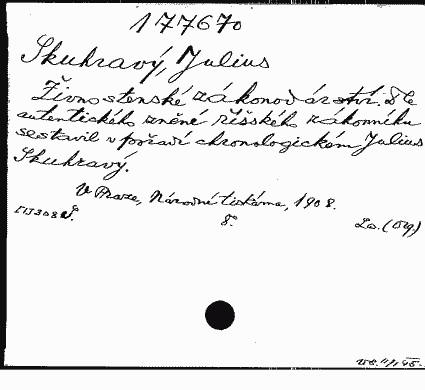 177670
Skuhravý, Julius
Živnostenské zákonodárství. Dle
autentického znění říšského zákonníku
sestavil v pořadí chronologickém Julius
Skuhravý.
V Praze, Národní tiskárna, 1908.
8°.